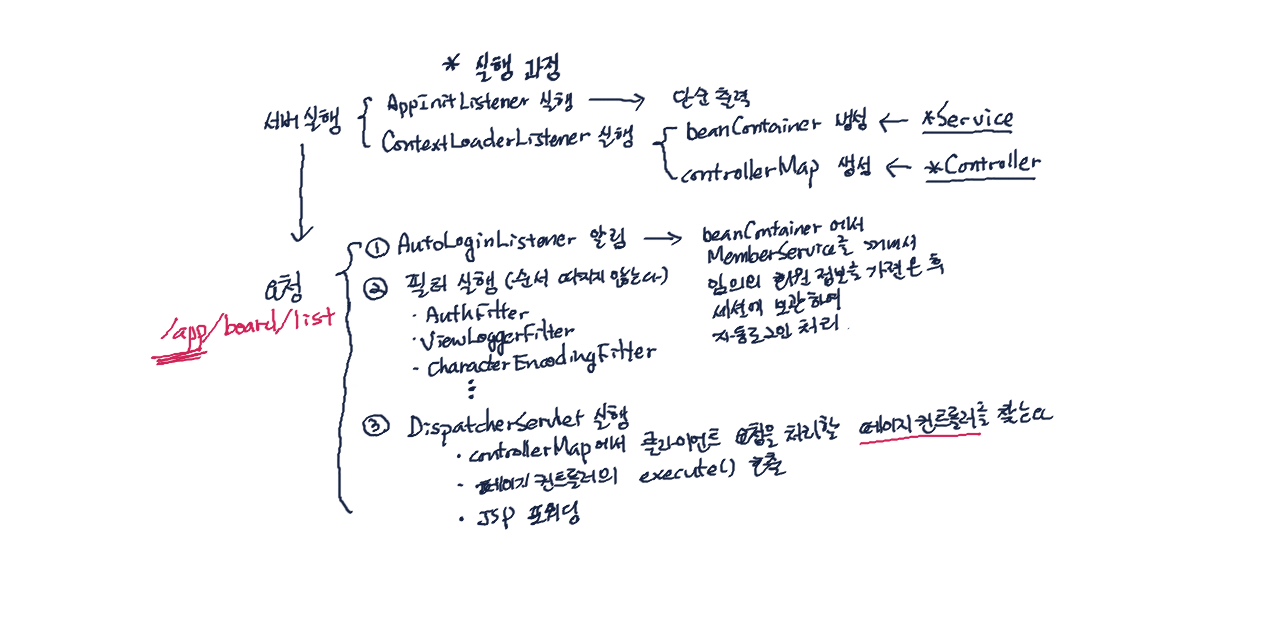 * 실행 과정
서버 실행
AppInitListener 실행 → 단순 출력
ContextLoaderListener 실행
beanContainer 생성 ← *Service
controllerMap 생성 ← *Controller
요청
/app/board/list
① AutoLoginListener 알림 → beanContainer 에서
MemberService를 꺼내서
임의의 회원 정보를 가져온 후
세션에 보관하여
자동로그인 처리.
② 필터 실행 (순서 따지지 않는다)
· AuthFilter
· ViewLoggerFilter
· CharacterEncodingFilter
⋮
③ DispatcherServlet 실행
· controllerMap에서 클라이언트 요청을 처리할 페이지 컨트롤러를 찾는다
· 페이지 컨트롤러의 execute() 호출
· JSP 포워딩